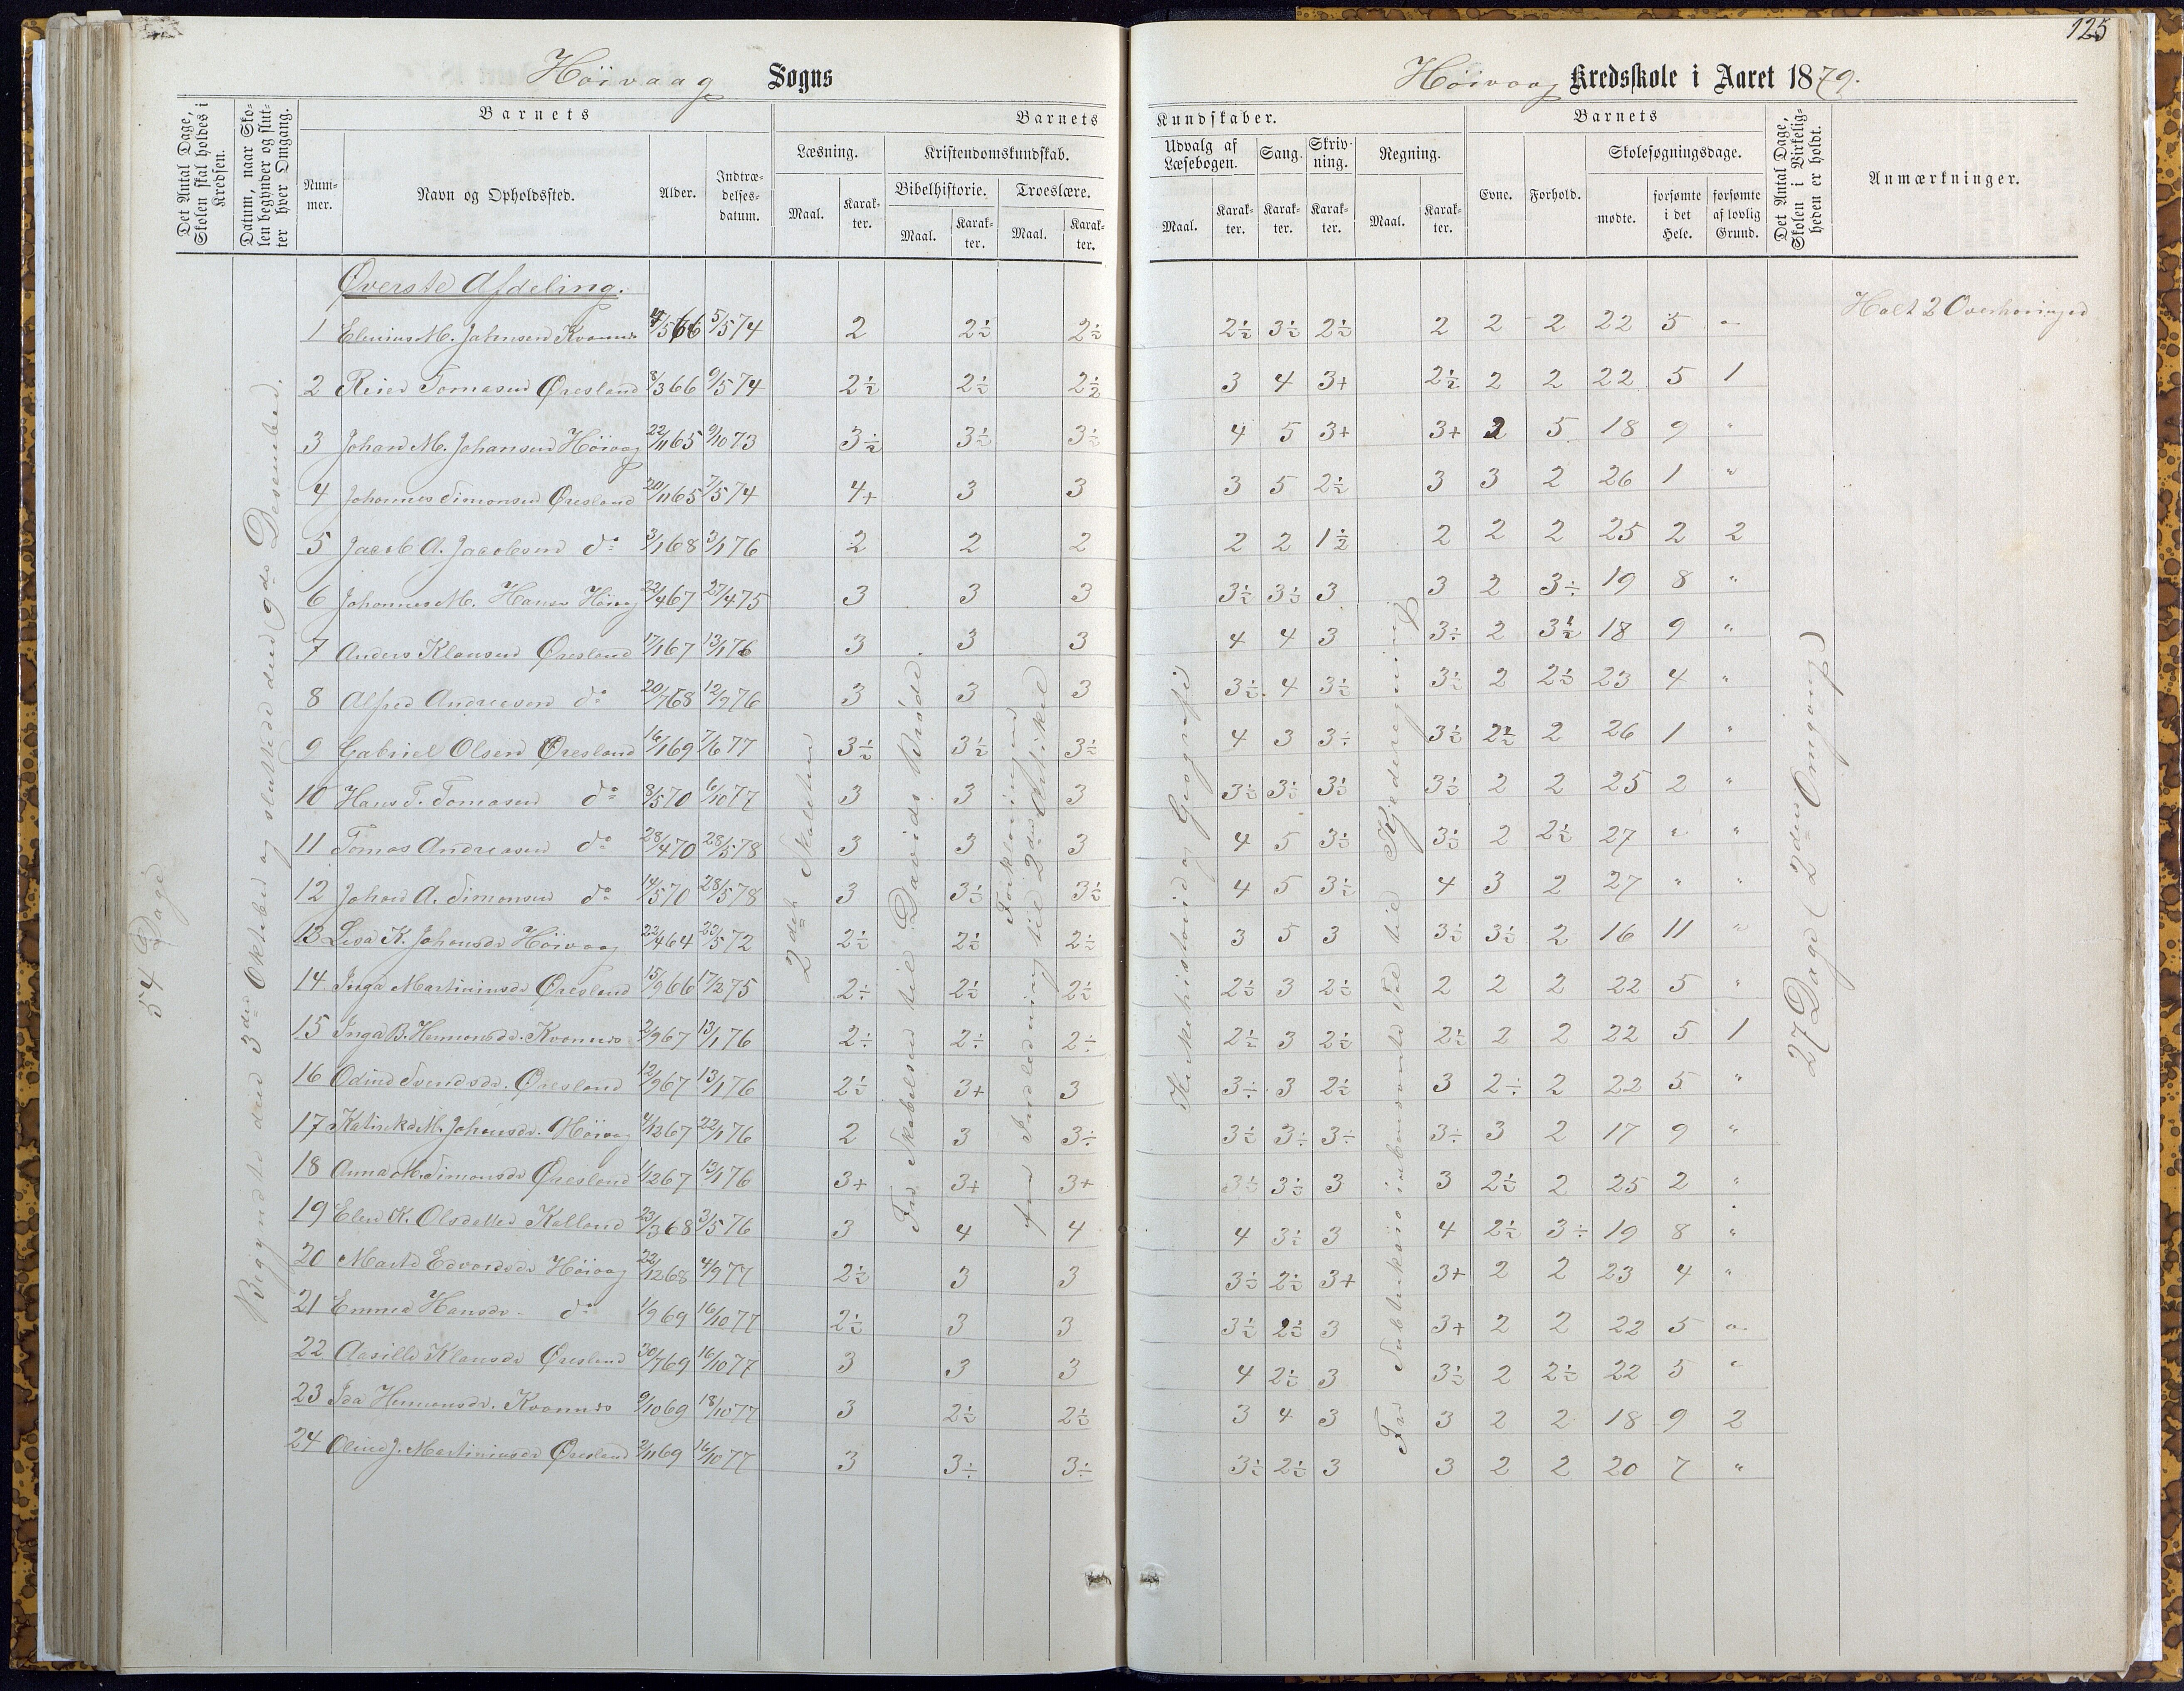 125
Höivaag Sogns
Höivaag Kredsskole i Aaret 1879.
Det Antal Dage, Skolen skal holdes i Kredsen.
Datum, naar Skolen begynder og slutter hver Omgang.
Barnets
Nummer.
Navn og Opholdssted.
Alder.
Indtrædelsesdatum.
Barnets
Læsning.
Maal.
Karakter.
Kristendomskundskab.
Bibelhistorie.
Maal.
Karakter.
Troeslære.
Maal.
Karakter.
Kundskaber.
Udvalg af Læsebogen.
Maal.
Karakter.
Sang.
Karakter.
Skrivning.
Karakter.
Regning.
Maal.
Karakter.
Barnets
Evne.
Forhold.
Skolesøgningsdage.
mødte.
forsømte i det Hele.
forsømte af lovlig Grund.
Det Antal Dage, Skolen i Virkeligheden er holdt.
Anmærkninger.
54 Dage
Begyndte den 3die Oktober og sluttede den 9de Desember.
Øverste Afdeling.
2det Skoletrin
Fra Skabelsen til Davids Brøde
Forklaringen fra Indledning til 2den Artikel
Kirkehistorie og Geografi
Fra Subtraksion til Kjederegning
27 Dage (2den Omgang)
Holt 2 Overhøringer
1 M. Johnsen 5/574 2 2÷ 2÷ 2÷ 3÷ 2÷ 2 2 2 22 5 "
2 Reier Tomasen Øresland 8/366 9/574 2½ 2½ 2½ 3 4 3+ 2½ 2 2 22 5 1
3 Johan M. Johansen Höivaag 22/1165 9/1073 3½ 3½ 3½ 4 5 3+ 3+ 2 5 18 9 "
4 Johannes Simonsen Øresland 20/1165 7/574 4+ 3 3 3 5 2½ 3 3 2 26 1 "
5 Jacob A. Jacobsen do 3/168 3/176 2 2 2 2 2 1½ 2 2 2 25 2 2
6 Johannes M. Hansen Höivaag 22/467 27/475 3 3 3 3½ 3½ 3 3 2 3÷ 19 8 "
7 Anders Klausen Øresland 17/167 13/176 3 3 3 4 4 3 3÷ 2 3½ 18 9 "
8 Alfred Andreasen do 20/768 12/976 3 3 3 3½ 4 3½ 3½ 2 2½ 23 4 "
9 Gabriel Olsen Øresland 16/169 7/677 3½ 3½ 3½ 4 3 3÷ 3½ 2½ 2 26 1 "
10 Hans T. Tomasen do 8/570 6/1077 3 3 3 3½ 3½ 3½ 3½ 2 2 25 2 "
11 Tomas Andreasen do 28/470 28/578 3 3 3 4 5 3½ 3½ 2 2½ 27 " "
12 Johan A. Simonsen do 14/570 28/578 3 3½ 3½ 4 5 3½ 4 3 2 27 " "
13 K. Johansdr Höivaag 22/464 23/572 2½ 2½ 2½ 3 5 3 3½ 3½ 2 16 11 "
14 Inga Martiniusdr Øresland 15/966 17/275 2÷ 2½ 2½ 2½ 3 2½ 2 2 2 22 5 "
15 Inga B. 2/967 13/176 2÷ 2÷ 2÷ 2½ 3 2½ 2½ 2 2 22 5 1
16 Svendsdr. Øresland 12/967 13/176 2½ 3+ 3 3÷ 3 2½ 3 2÷ 2 22 5 "
17 Katinka M. Johansdr. Höivaag 4/1267 22/176 2 3 3÷ 3½ 3÷ 3÷ 3÷ 3 2 17 9 "
18 Anna M. Simonsdr Øresland 1/1267 13/176 3+ 3+ 3+ 3½ 3½ 3 3 2½ 2 25 2 "
19 Elen K. Olsdatter Kalland 23/368 3/576 3 4 4 4 3½ 3 4 2½ 3÷ 19 8 "
20 Edvardsdr Höivaag 22/1268 4/977 2½ 3 3 3½ 2½ 3+ 3+ 2 2 23 4 "
21 Emma Hansdr. do 1/969 16/1077 2½ 3 3 3½ 2½ 3 3+ 2 2 22 5 "
22 Aasille Klausdr Øresland 30/769 16/1077 3 3 3 4 2½ 3 3½ 2 2½ 22 5 "
23 Ida 9/1069 18/1077 3 2½ 2½ 3 4 3 3 2 2 18 9 2
24 J. Martiniusdr Øresland 2/1169 16/1077 3 3÷ 3÷ 3½ 2½ 3 3 2 2 20 7 "